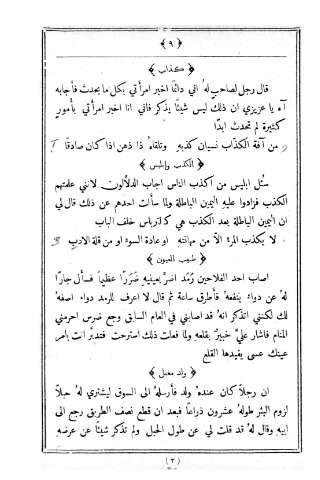 ﴿ ٩ ﴾
﴿ كذاب ﴾
قال رجل لصاحبٍ لهُ اني دائمًا اخبر امرأتي بكل ما يحدث فأجابه
آه يا عزيزي ان ذلك ليس شيئًا يذكر فاني انا اخبر امرأتي بأمورٍ
كثيرة لم تحدث ابدًا
من آفة الكذّاب نسيان كذبه وتلقاءُ ذا ذهن اذا كان صادقًا
﴿ الكذب وابليس ﴾
سُئل ابليس من اكذب الناس اجاب الدلّالون لانني علمتهم
الكذب فزادوا عليه اليمين الباطلة ولما سألت احدهم عن ذلك قال لي
ان اليمين الباطلة بعد الكذب هي كالترباس خلف الباب
لا يكذب المرءُ الاّ من مهانتهِ او عادة السوء او من قلة الادبِ
﴿ طبيب العيون ﴾
اصاب احد الفلاحين رَمَد اضرّ بعينيه ضَرَرًا عظيمًا فسأل جارًا
لهُ عن دواء ينفعهُ فأطرق ساعة ثم قال لا اعرف للرمد دواء اصفهُ
لك لكنني اتذكر انه قد اصابني في العام السابق وجع ضرس احرمني
المنام فاشار عليَّ خبيرٌ بقلعهِ ولما فعلت ذلك استرحت فتدبَّر انت بامر
عينك عسى يفيدها القلع
﴿ ولد مغفل ﴾
ان رجلًا كان عندهُ ولد فأرسلهُ الى السوق ليشتري لهُ حبلًا
لزوم البئر طولهُ عشرون ذراعًا فبعد ان قطع نصف الطريق رجع الى
ابيه وقال لهُ قد قلت لي عن طول الحبل ولم تذكر شيئًا عن عرضهِ
(٢)